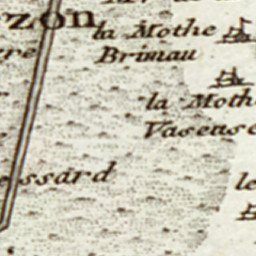 zon
la Mothe
Brimau
la Moth
Vaseuse
ssard
le